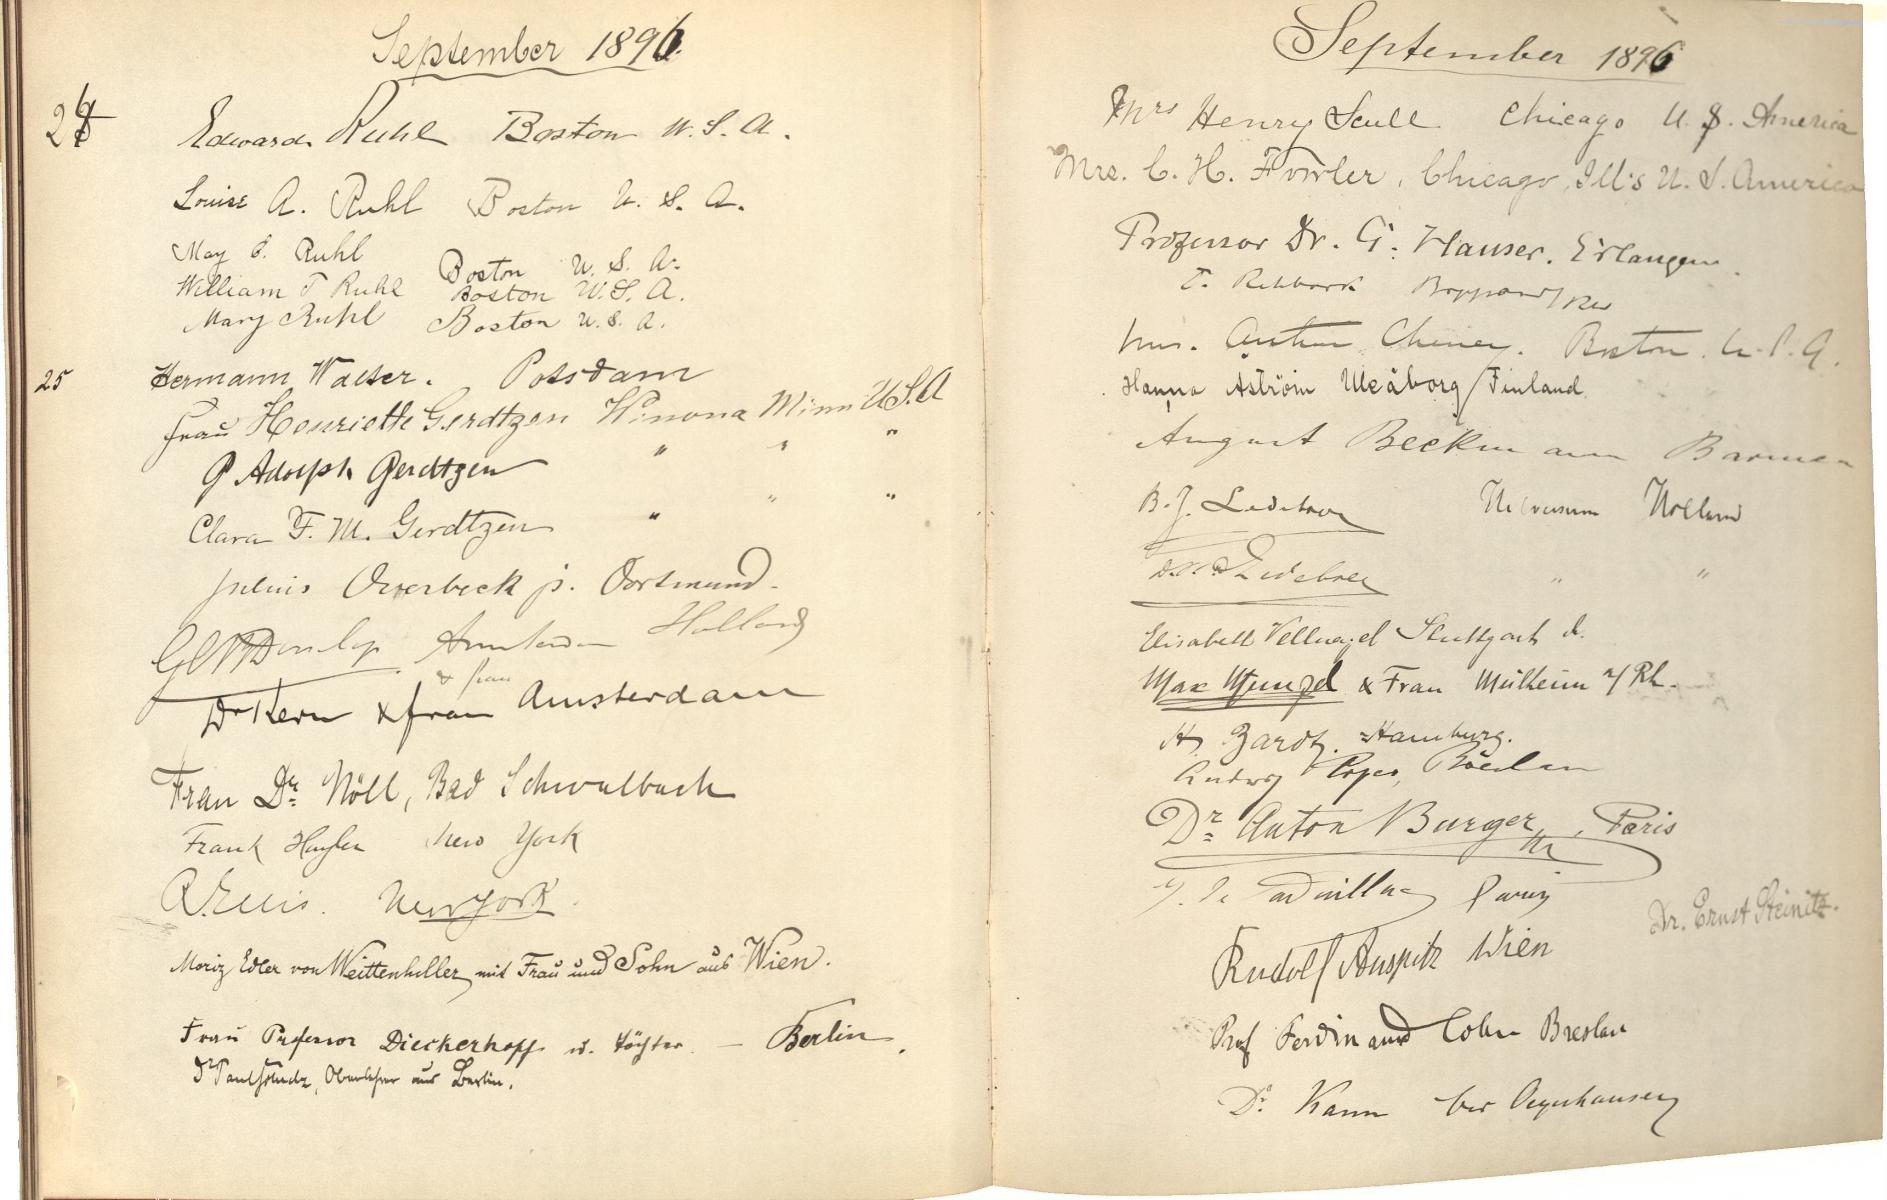 September 1896.
24
Edward Ruhl Boston U. S. A.
Louise A. Ruhl Boston U. S. A.
May E. Ruhl Boston U. S. A.
William T Ruhl Boston U. S. A.
Mary Ruhl Boston U. S. A.
25 Hermann Walter. Potsdam
Frau Henriette Gerdtzen Winona Minn U.S.A
G Adolph Gerdtzen " " "
Clara F. M. Gerdtzen " " "
Julius Overbeck jr. Dortmund.
Dunlop Amsterdam Holland
& frau
Dr Kern & frau Amsterdam
Frau Dr. Nöll, Bad Schwalbach
Frank New York
R. Ellis. New York.
Moriz Edler von Weittenhiller mit Frau und Sohn aus Wien.
Frau Professor Dieckerhoff u. Töchter – Berlin.
Dr Paul Oberlehrer aus Berlin.
September 1896
Mrs Henry Scull Chicago U. S. America
Mrs. C. H. Fowler, Chicago, Ill's U. S. America
Professor Dr. G. Hauser. Erlangen.
Boppard/Rh
Mrs. Arthur Cheney. Boston. U. S. A.
Hanna Aström Uleåborg/Finland.
August Beckmann Barmen
B. J. Ledeboer Hilversum Holland
Ledeboer " "
Elisabeth Vellnagel Stuttgart
Max & Frau Mülheim a/Rh.
H. Zardt. Hamburg.
Ludwig
Dr. Anton Burger, Paris
Paris
Dr. Ernst Steinitz.
Rudolf Auspitz Wien
Prof Ferdinand Cohn Breslau
Dr. Kann Oeynhausen